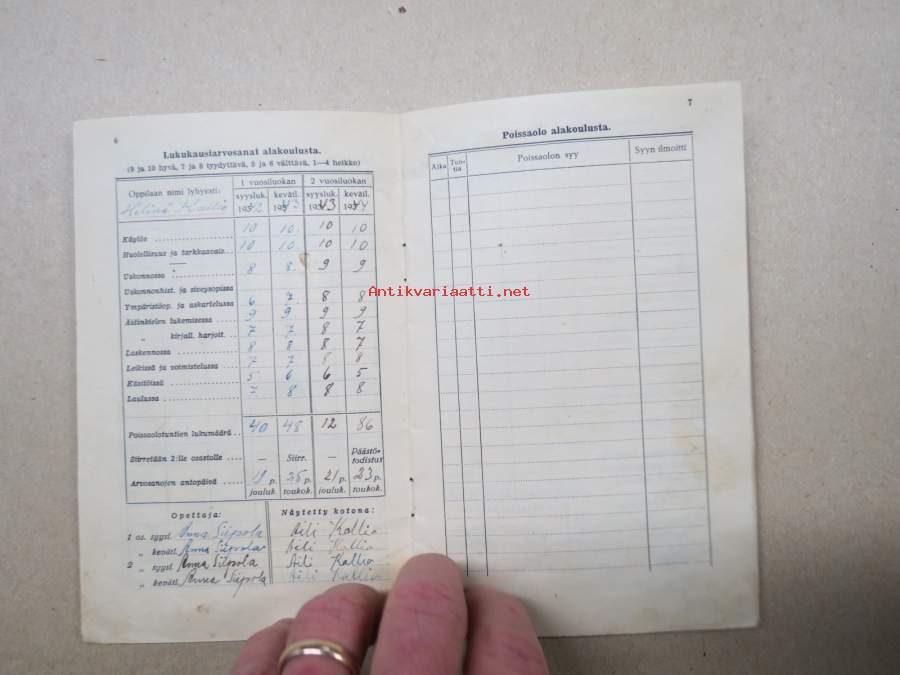 6
Lukukausiarvosanat alakoulusta.
(9 ja 10 hyvä, 7 ja 8 tyydyttävä, 5 ja 6 välttävä, 1—4 heikko)
Oppilaan nimi lyhyesti: 1 vuosiluokan 2 vuosiluokan
syysluk. kevätl. syysluk. kevätl.
Kallio 1942 1943 1943 1944
Käytös 10 10 10 10
Huolellisuus ja tarkkaavais. 10 10 10 10
Uskonnossa 8 8 9 9
Uskonnonhist. ja siveysopissa
Ympäristöop. ja askartelussa 6 7 8 8
Äidinkielen lukemisessa 9 9 9 9
„ kirjall. harjoit. 7 7 8 7
Laskennossa 8 8 8 7
Leikissä ja voimistelussa 7 7 8 8
Käsitöissä 5 6 6 5
Laulussa 7 8 8 8
Poissaolotuntien lukumäärä 40 48 12 86
Siirretään 2:lle osastolle — Siirr. — Päästötodistus
Arvosanojen antopäivä 19 p. jouluk. 25 p. toukok. 21 p. jouluk. 23 p. toukok.
Opettaja: Näytetty kotona:
1 os. syysl. Anna Siipola Aili Kallio
„ kevätl. Anna Siipola Aili Kallio
2 „ syysl. Anna Siipola Aili Kallio
„ kevätl. Anna Siipola Aili Kallio
7
Poissaolo alakoulusta.
Aika Tuntia Poissaolon syy Syyn ilmoitti
Antikvariaatti.net